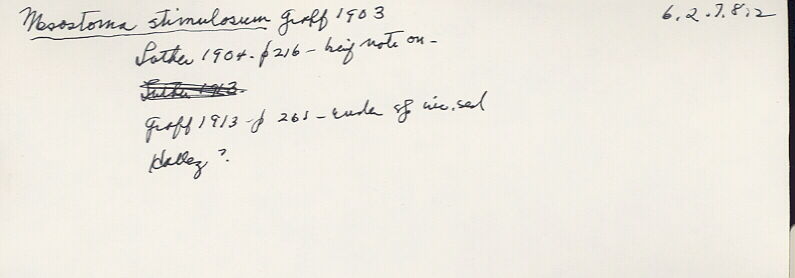 Mesostoma stimulosum Graff 1903 6.2.7.8:2
Luther 1904 - p 216 - brief note on -
Luther 1913.
Graff 1913 - p 265 - under sp inc. sed
Hallez ?.